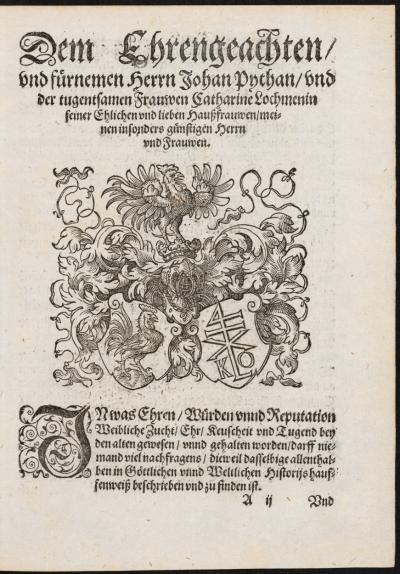 Dem Ehrengeachten/
vnd fürnemen Herrn Johan Pythan/ vnd
der tugentsamen Frauwen Catharine Lochmenin
seiner Ehlichen vnd lieben Haußfrauwen/ mei-
nen insonders günstigen Herrn
vnd Frauwen.
K L O
IN was Ehren/ Würden vnnd Reputation
Weibliche Zucht/ Ehr/ Keuscheit vnd Tugend bey
den alten gewesen/ vnnd gehalten worden/ darff nie-
mand viel nachfragens/ dieweil dasselbige allenthal-
ben in Göttlichen vnnd Weltlichen Historijs hauf-
fenweiß beschrieben vnd zu finden ist.
A ij Vnd